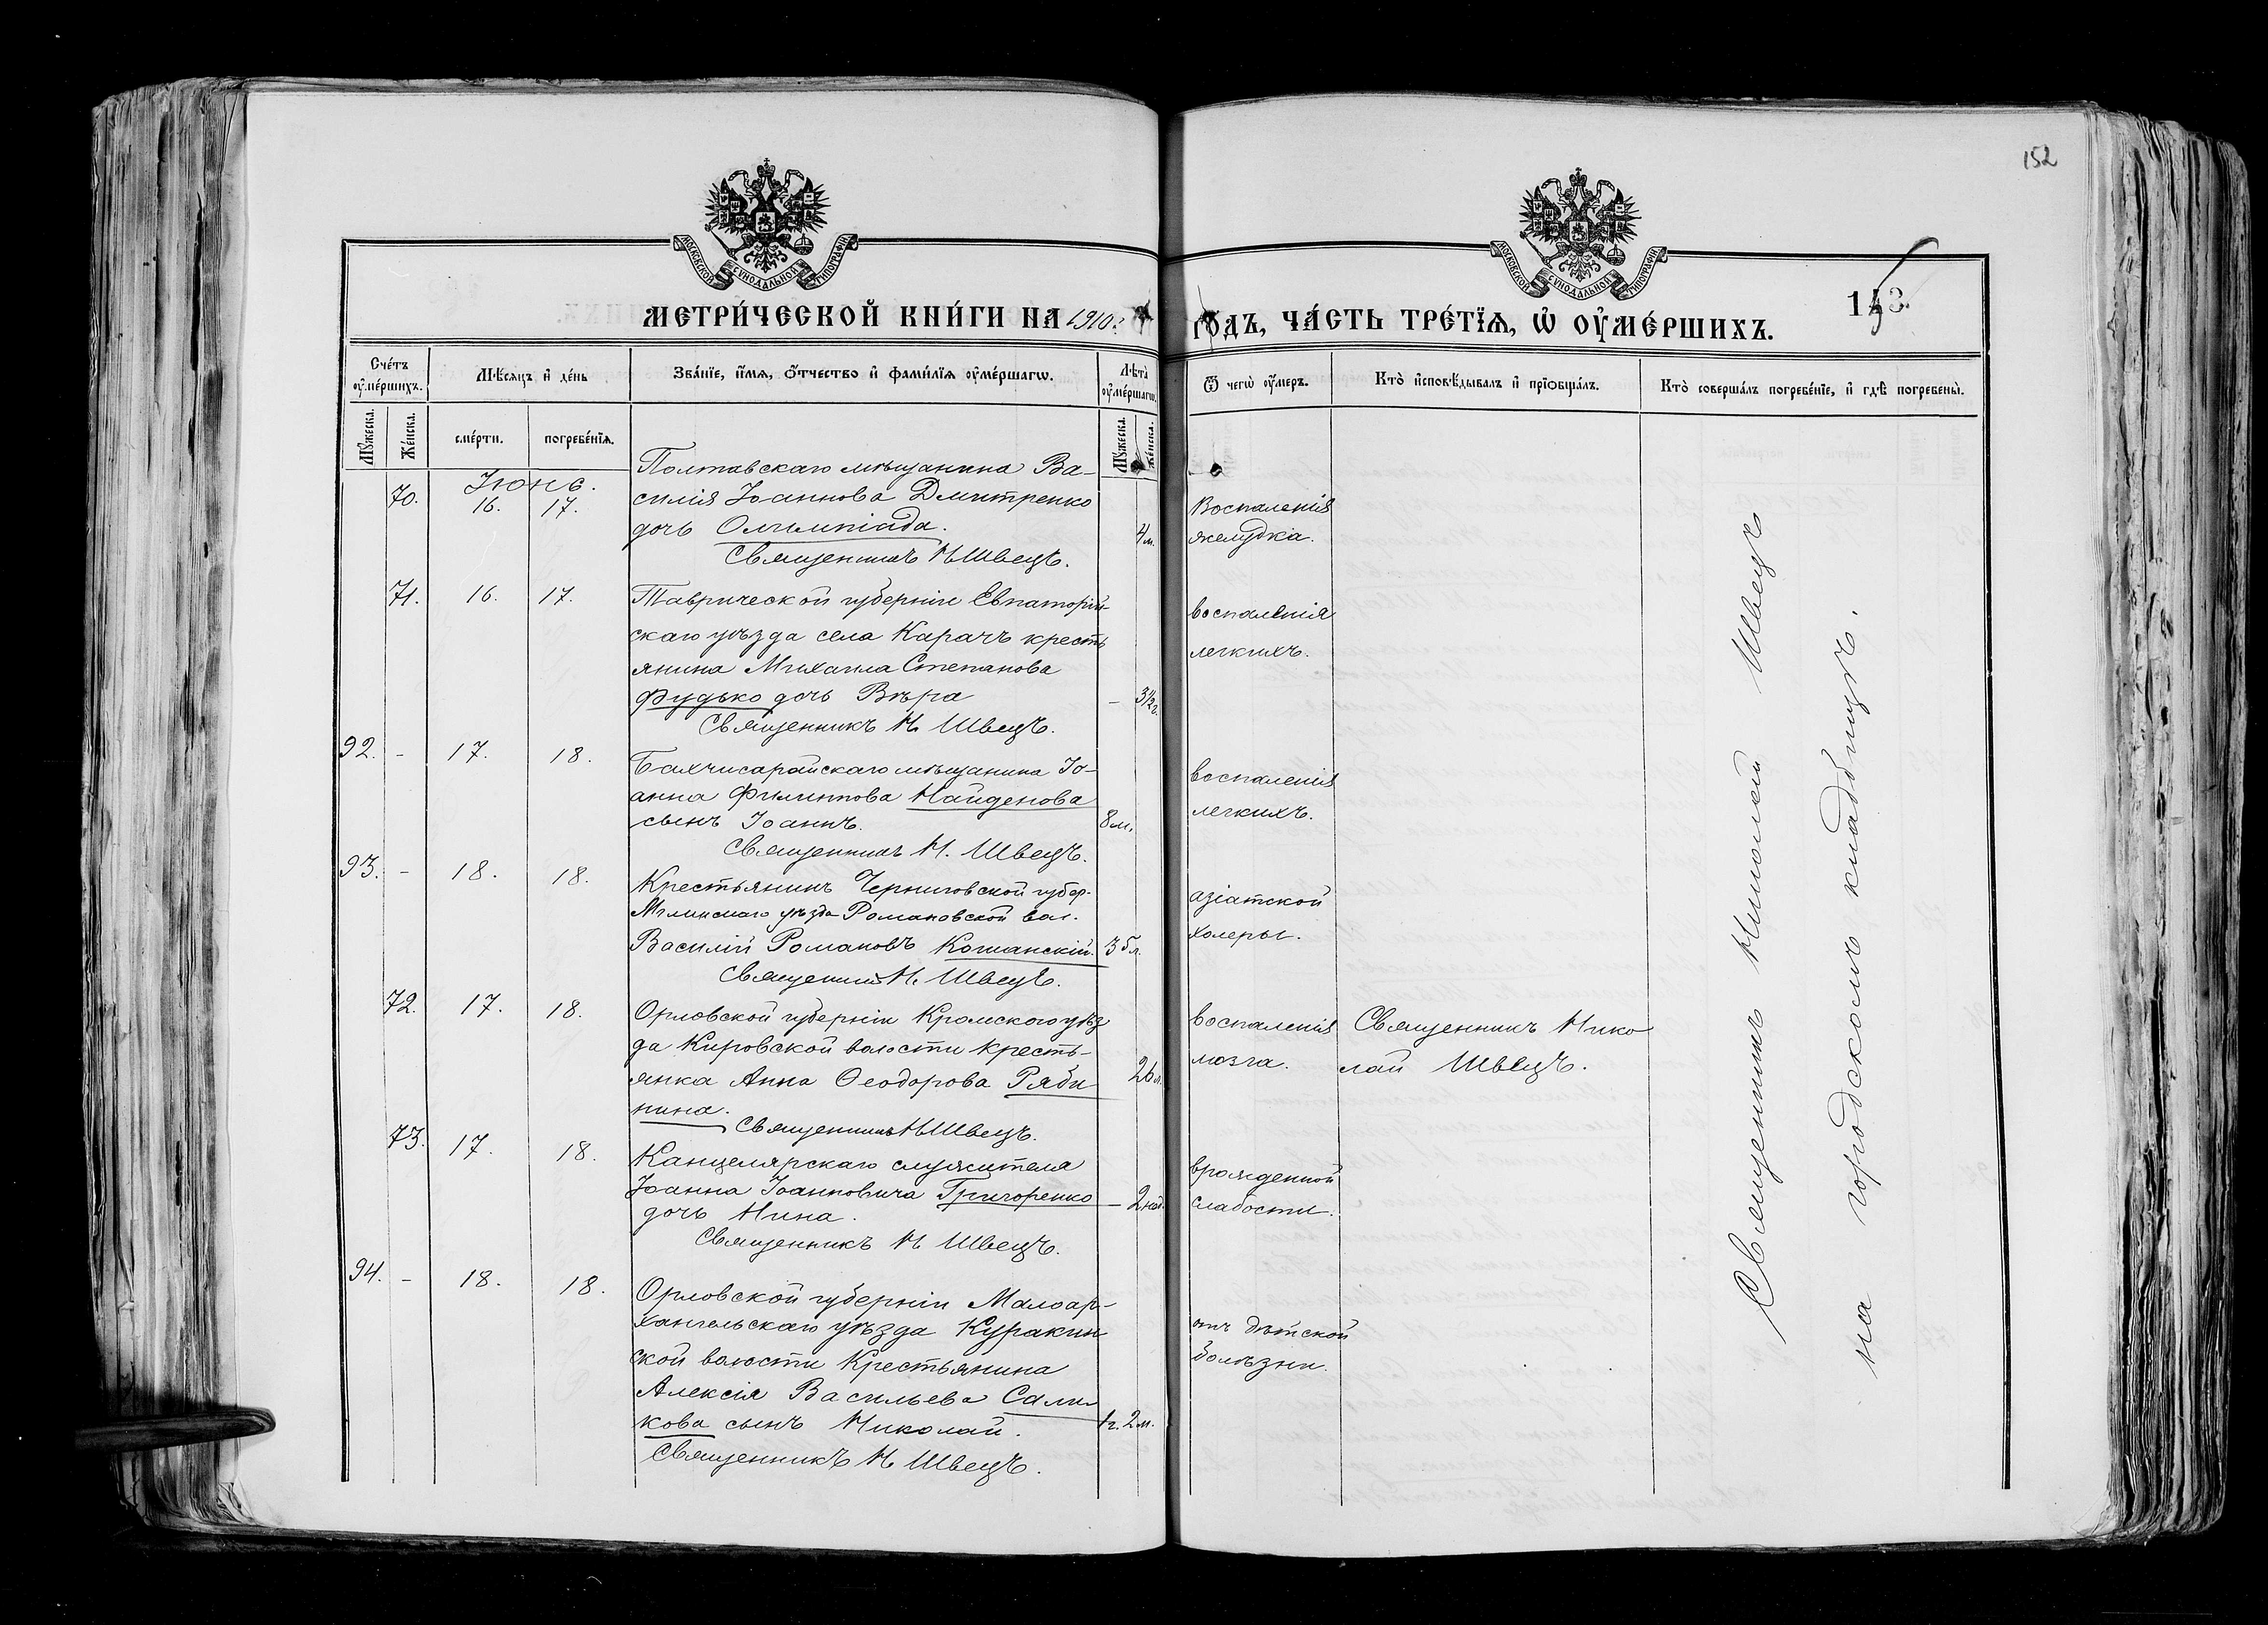 152
МОСКОВСКОЙ СѴНОДАЛЬНОЙ ТИПОГРАФІИ
МОСКОВСКОЙ СѴНОДАЛЬНОЙ ТИПОГРАФІИ
МЕТРИ́ЧЕСКОЙ КНИ́ГИ НА 1910 г. ГОДЪ, ЧА́СТЬ ТРЕ́ТЇѦ, Ѡ҆ ОУ҆МЕ́РШИХЪ.
Сче́тъ оу҆ме́ршихъ.
Мꙋ́жеска.
Же́нска.
Мѣ́сѧцъ и҆ де́нь
сме́рти.
погребе́нїѧ.
Зва́нїе, и҆́мѧ, ѻ҆́тчество и҆ фами́лїѧ оу҆ме́ршагѡ.
Лѣ́та оу҆ме́ршагѡ.
Мꙋ́жеска.
Же́нска.
Ѿ чегѡ̀ оу҆́меръ.
Кто̀ и҆сповѣ́дывалъ и҆ прїѻбща́лъ.
Кто̀ соверша́лъ погребе́нїе, и҆ гдѣ̀ погребены̀.
Іюнь.
70. 16. 17. Полтавскаго мѣщанина Ва-
силія Іоаннова Дмитренко
дочь Олимпіада. 4 м.
Священникъ Н Швецъ.
Воспаленія
желудка.
71. 16. 17. Таврической губерніи Евпаторій-
скаго уѣзда села Карачъ кресть
янина Михаила Степанова
Фудько дочь Вѣра - 3 1/2 г.
Священникъ Н. Швецъ.
воспаленія
легкихъ.
92. - 17. 18. Бахчисарайскаго мѣщанина Іо-
анна Филиппова Найденова
сынъ Іоаннъ. 8 м.
Священникъ Н. Швецъ.
воспаленія
легкихъ.
93. - 18. 18. Крестьянинъ Черниговской губер.
Мглинскаго уѣзда Романовской вол.
Василій Романовъ Кошанскій. 35 л.
Священникъ Н. Швецъ.
азіатской
холеры.
72. 17. 18. Орловской губерніи Кромского уѣз
да Кировской волости кресть-
янка Анна Ѳеодорова Ряби 26 л.
нина.
Священникъ Н Швецъ.
воспаленія
мозга.
Священникъ Нико
лай Швецъ.
73. 17. 18. Канцелярскаго служителя
Іоанна Іоанновича Григоренко - 2 нед.
дочь Нина.
Священникъ Н Швецъ.
врожденной
слабости.
94. - 18. 18. Орловской губерніи Малоар-
хангельскаго уѣзда Куракин
ской волости Крестьянина
Алексія Васильева Сали
кова сынъ Николай. 1 г. 2 м.
Священникъ Н. Швецъ.
отъ дѣтской
болѣзни.
Священникъ Николай Швецъ
на городскомъ кладбищѣ.